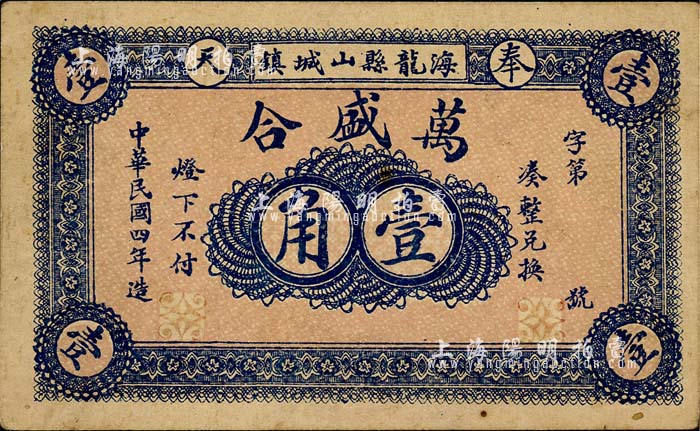 奉天
海龍縣山城鎮
萬盛合
壹角
字第 號
湊整兌換
燈下不付
中華民國四年造
壹
壹
壹
上海陽明拍賣
www.yangmingauction.com
上海陽明拍賣
www.yangmingauction.com
上海陽明拍賣
www.yangmingauction.com